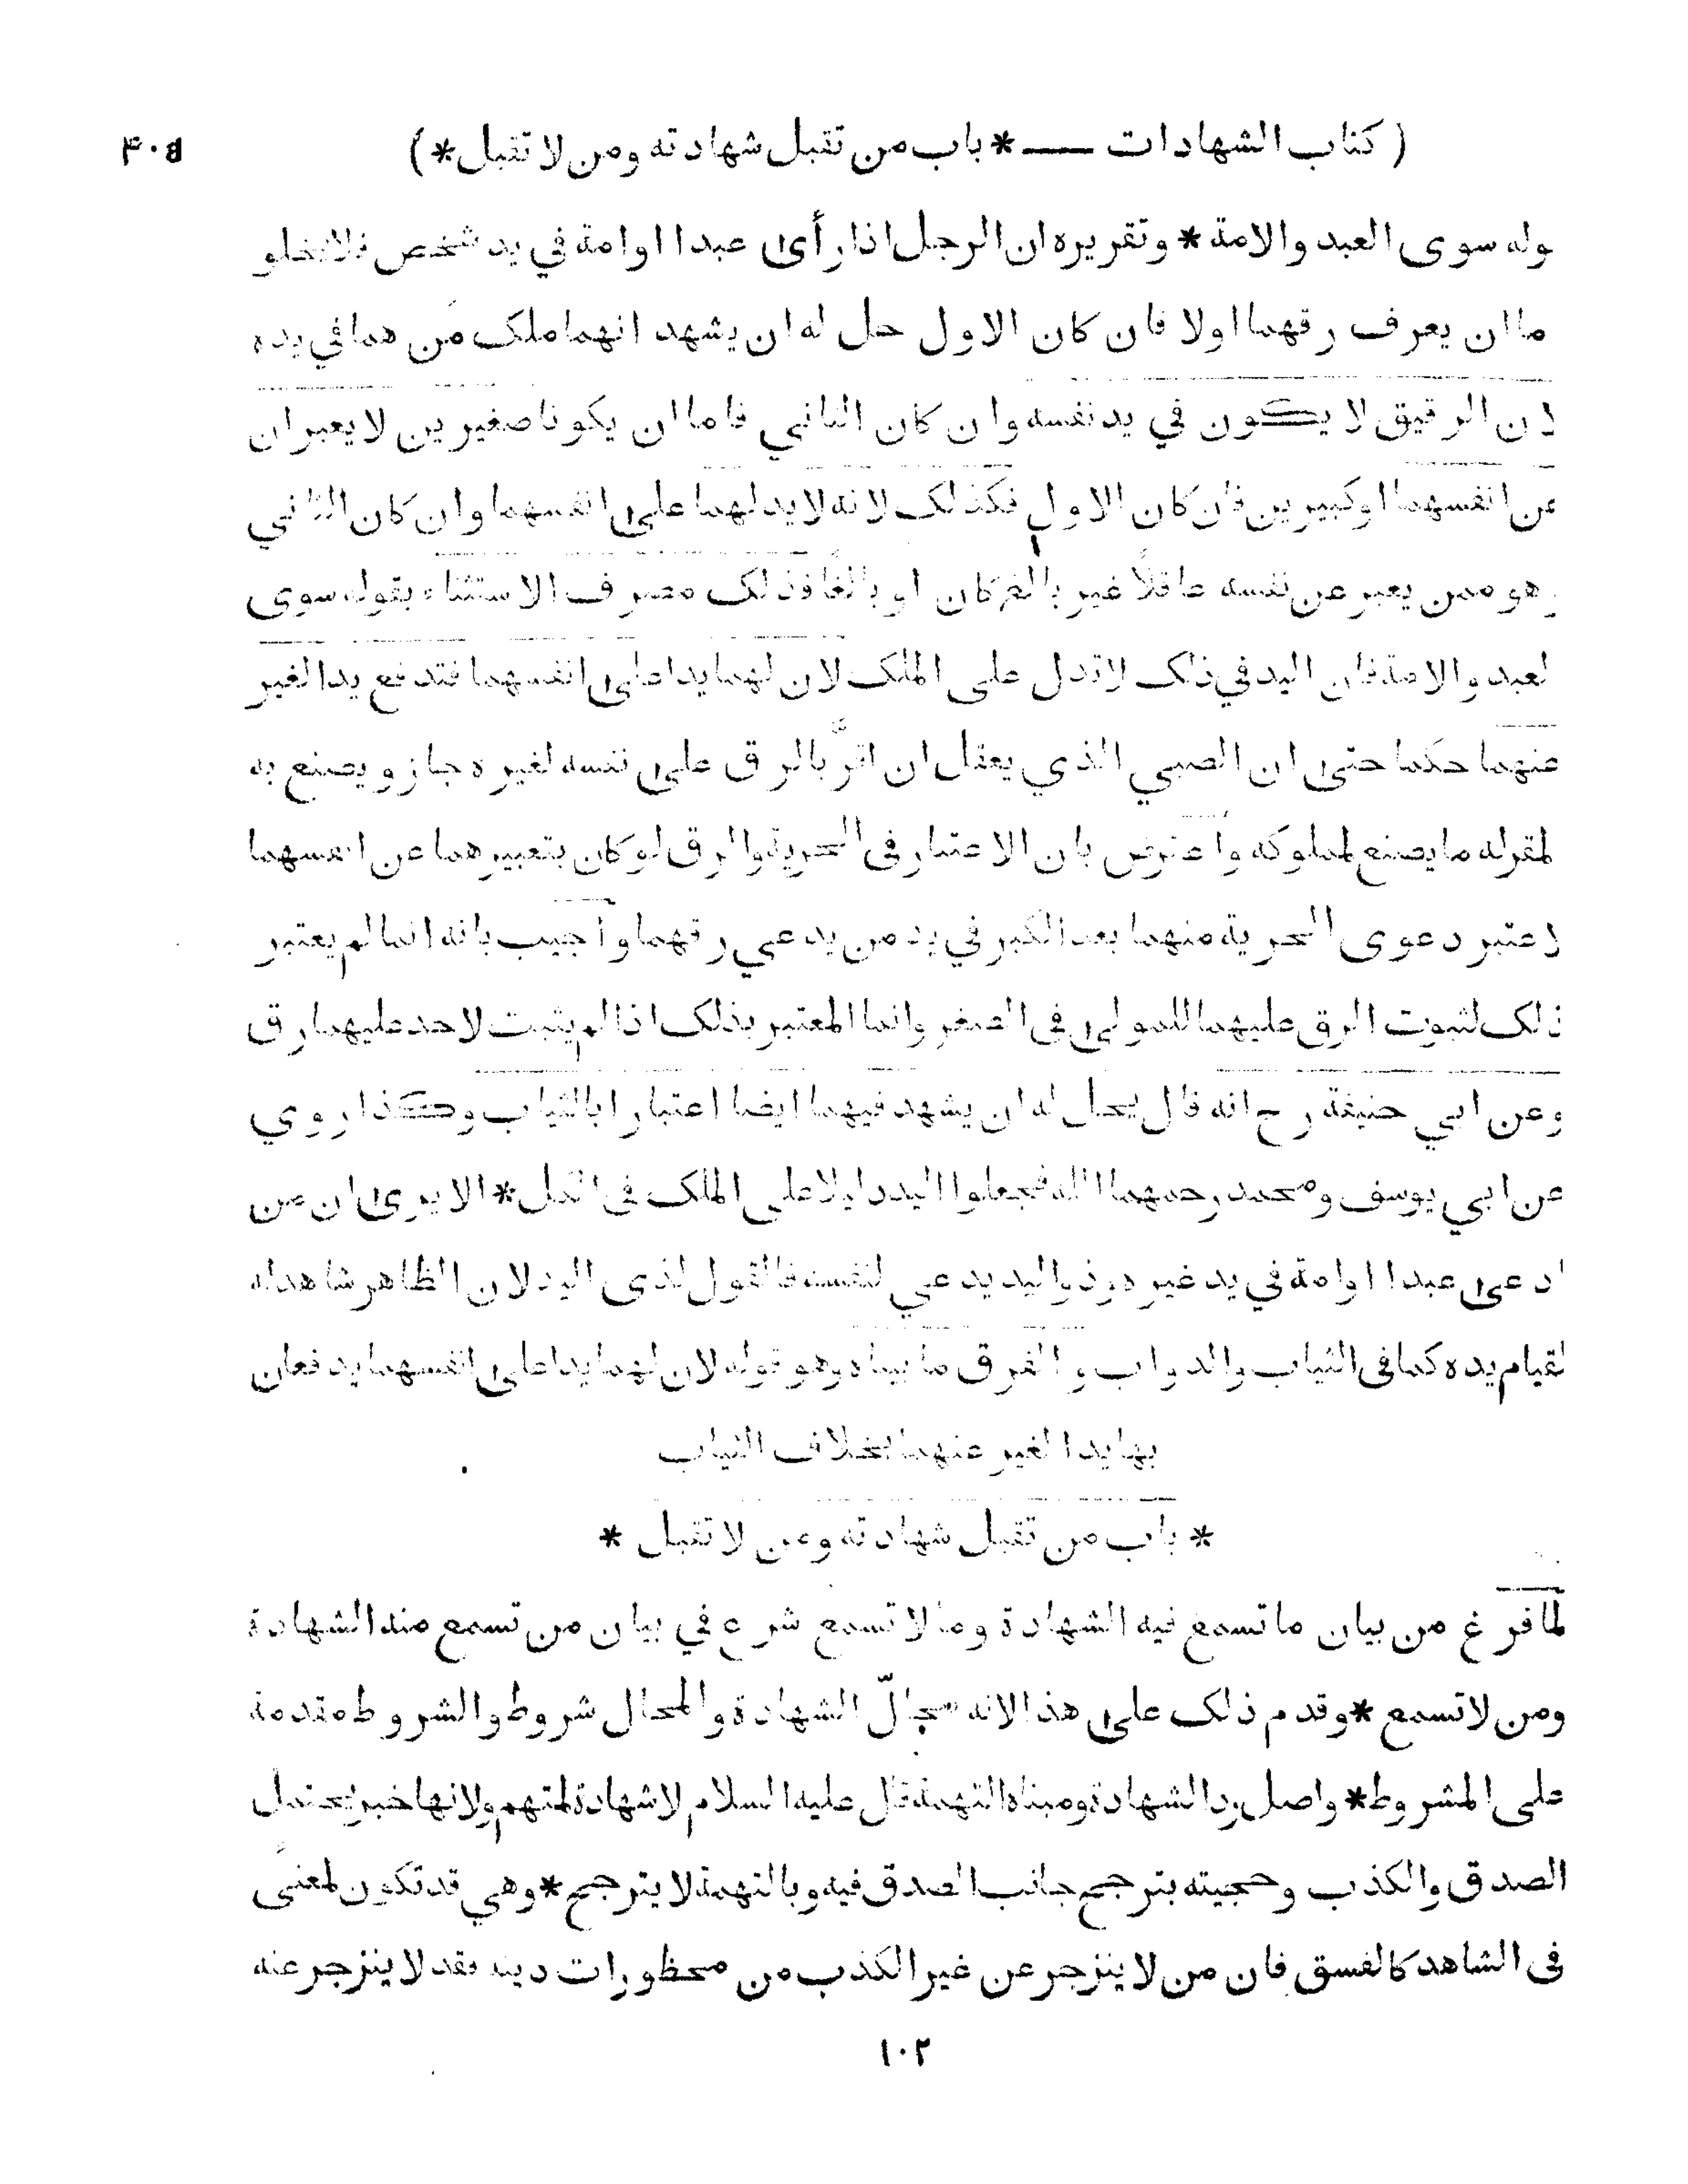 ( كتاب الشهادات — * باب من تقبل شهادته ومن لا تقبل * ) ۴۰۵
وله سوى العبد والامة * وتقريره ان الرجل اذا رأى عبدا او امة في يد شخص فلا يخلو
ما ان يعرف رقهما اولا فان كان الاول حل له ان يشهد انهما ملك من هما في يده
لان الرقيق لا يكون في يد نفسه وان كان الثاني فاما ان يكونا صغيرين لا يعبران
عن انفسهما او كبيرين فان كان الاول فكذلك لانه لا يد لهما على انفسهما وان كان الثاني
وهو ممن يعبر عن نفسه عاقلاً غير بالغ كان او بالغاً فذلك مصرف الاستثناء بقوله سوى
لعبد والامة فان اليد في ذلك لا تدل على الملك لان لهما يدا على انفسهما فتدفع يد الغير
عنهما حكما حتى ان الصبي الذي يعقل ان اقرّ بالرق على نفسه لغيره جاز ويصنع به
لمقر له ما يصنع لمملوكه وأعترض بان الاعتبار في الحرية والرق لو كان بتعبيرهما عن انفسهما
لاعتبر دعوى الحرية منهما بعد الكبر في يد من يدعي رقهما وأجيب بانه انما لم يعتبر
ذلك لثبوت الرق عليهما للمولى في الصغر وانما المعتبر بذلك اذا لم يثبت لاحد عليهما رق
وعن ابي حنيفة رح انه قال يحل له ان يشهد فيهما ايضا اعتبارا بالثياب وهكذا روي
عن ابي يوسف ومحمد رحمهما الله فجعلوا اليد دليلا على الملك في الكل * الا يرى ان من
ادعى عبدا او امة في يد غيره وذو اليد يدعي لنفسه فالقول لذى اليد لان الظاهر شاهد له
لقيام يده كما في الثياب والدواب والفرق ما بيناه وهو قوله لان لهما يدا على انفسهما يدفعان
بها يد الغير عنهما بخلاف الثياب
* باب من تقبل شهادته ومن لا تقبل *
لما فرغ من بيان ما تسمع فيه الشهادة وما لا تسمع شرع في بيان من تسمع منه الشهادة
ومن لا تسمع * وقدم ذلك على هذا لانه محالّ الشهادة والمحال شروط والشروط مقدمة
على المشروط * واصل رد الشهادة ومبناه التهمة قال عليه السلام لا شهادة لمتهم ولانها خبر يحتمل
الصدق والكذب وحجيته بترجح جانب الصدق فيه وبالتهمة لا يترجح * وهي قد تكون لمعنًى
فى الشاهد كالفسق فان من لا ينزجر عن غير الكذب من محظورات دينه فقد لا ينزجر عنه
۱۰۲